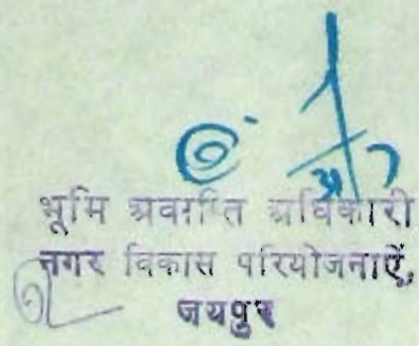 भूमि अवाप्ति अधिकारी
नगर विकास परियोजनाऐं,
जयपुर